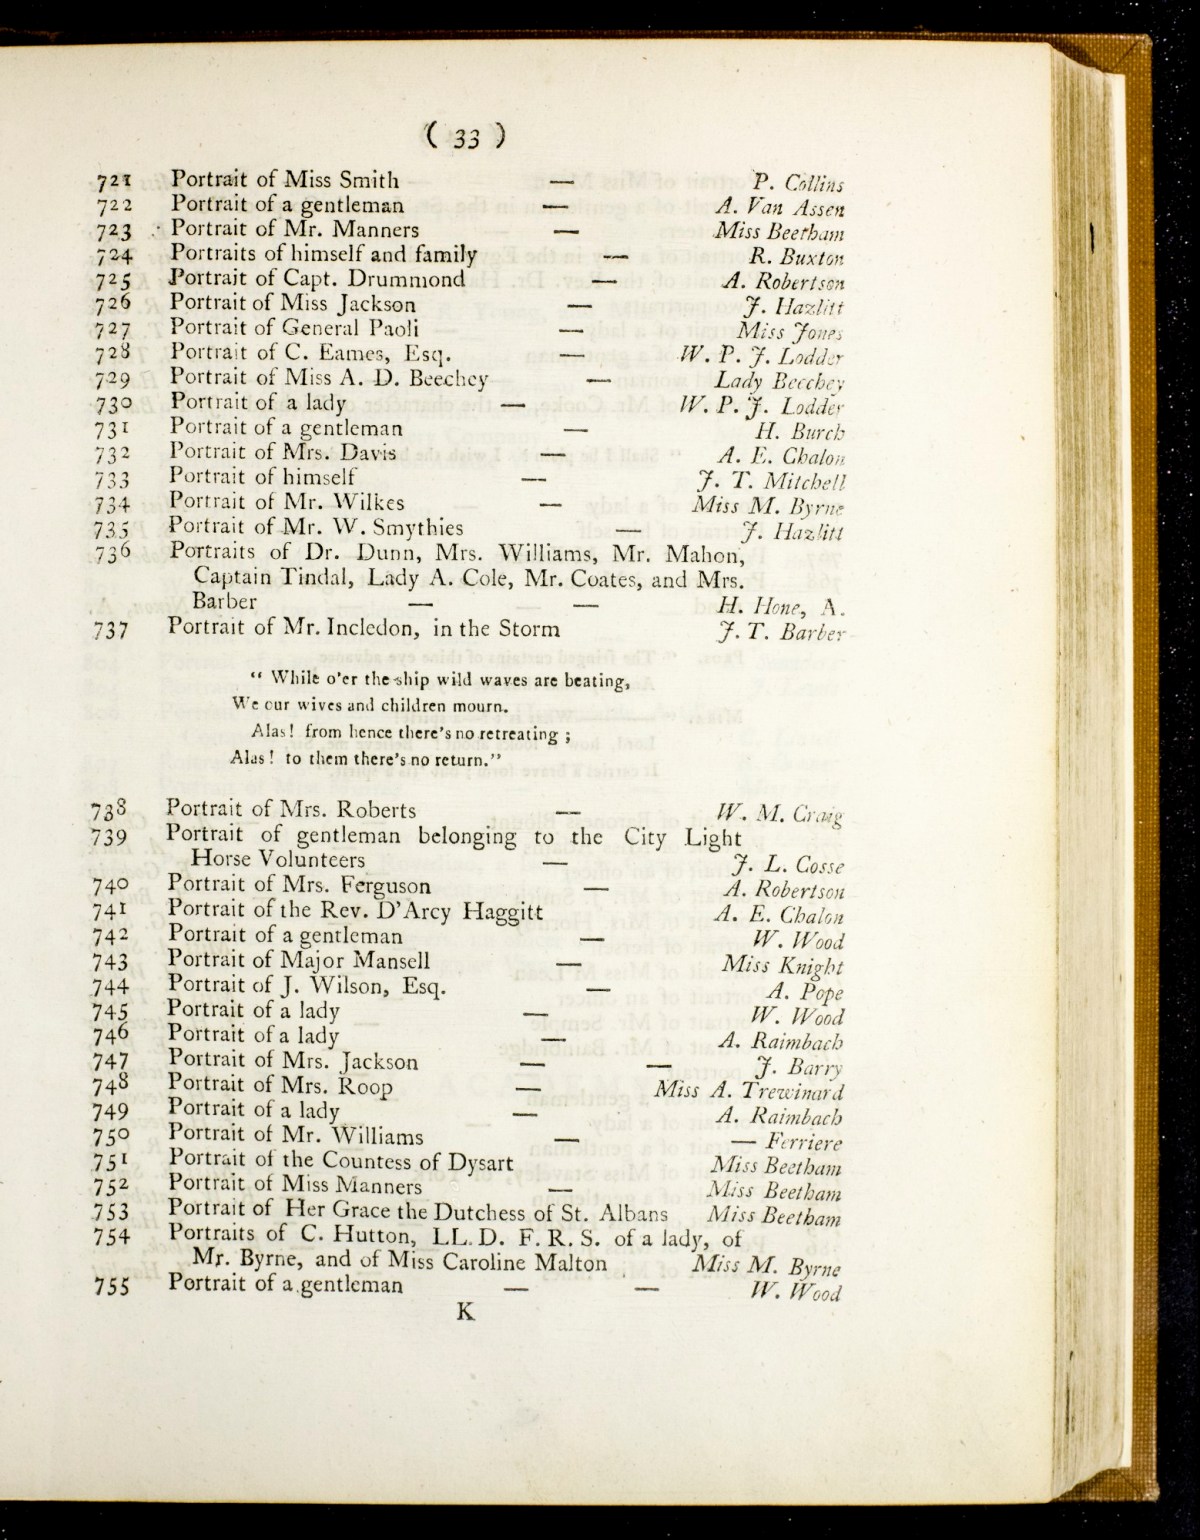 ( 33 )
721 Portrait of Miss Smith — P. Collins
722 Portrait of a gentleman — A. Van Assen
723 Portrait of Mr. Manners — Miss Beetham
724 Portraits of himself and family — R. Buxton
725 Portrait of Capt. Drummond — A. Robertson
726 Portrait of Miss Jackson — J. Hazlitt
727 Portrait of General Paoli — Miss Jones
728 Portrait of C. Eames, Esq. — W. P. J. Lodder
729 Portrait of Miss A. D. Beechey — Lady Beechey
730 Portrait of a lady — W. P. J. Lodder
731 Portrait of a gentleman — H. Burch
732 Portrait of Mrs. Davis — A. E. Chalon
733 Portrait of himself — J. T. Mitchell
734 Portrait of Mr. Wilkes — Miss M. Byrne
735 Portrait of Mr. W. Smythies — J. Hazlitt
736 Portraits of Dr. Dunn, Mrs. Williams, Mr. Mahon,
Captain Tindal, Lady A. Cole, Mr. Coates, and Mrs.
Barber — — H. Hone, A.
737 Portrait of Mr. Incledon, in the Storm J. T. Barber
“ While o'er the ship wild waves are beating,
We our wives and children mourn.
Alas! from hence there's no retreating ;
Alas! to them there's no return.”
738 Portrait of Mrs. Roberts — W. M. Craig
739 Portrait of gentleman belonging to the City Light
Horse Volunteers — J. L. Cosse
740 Portrait of Mrs. Ferguson — A. Robertson
741 Portrait of the Rev. D'Arcy Haggitt A. E. Chalon
742 Portrait of a gentleman — W. Wood
743 Portrait of Major Mansell — Miss Knight
744 Portrait of J. Wilson, Esq. — A. Pope
745 Portrait of a lady — W. Wood
746 Portrait of a lady — A. Raimbach
747 Portrait of Mrs. Jackson — — J. Barry
748 Portrait of Mrs. Roop — Miss A. Trewinard
749 Portrait of a lady — A. Raimbach
750 Portrait of Mr. Williams — — Ferriere
751 Portrait of the Countess of Dysart Miss Beetham
752 Portrait of Miss Manners — Miss Beetham
753 Portrait of Her Grace the Dutchess of St. Albans Miss Beetham
754 Portraits of C. Hutton, LL. D. F. R. S. of a lady, of
Mr. Byrne, and of Miss Caroline Malton Miss M. Byrne
755 Portrait of a gentleman — — W. Wood
K